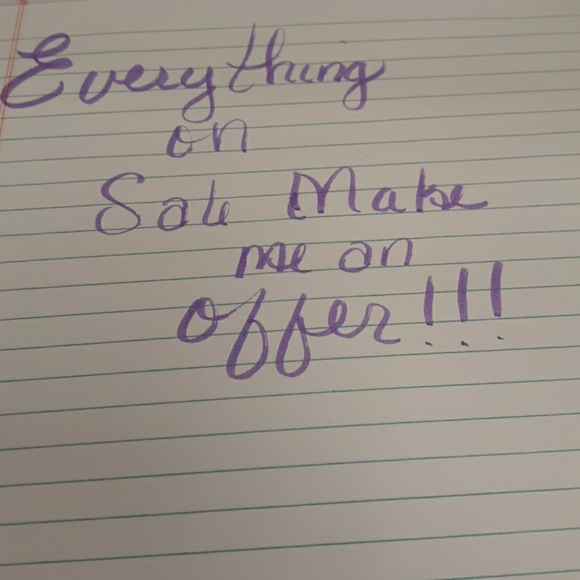 Everything
on
Sale Make
me an
offer!!!